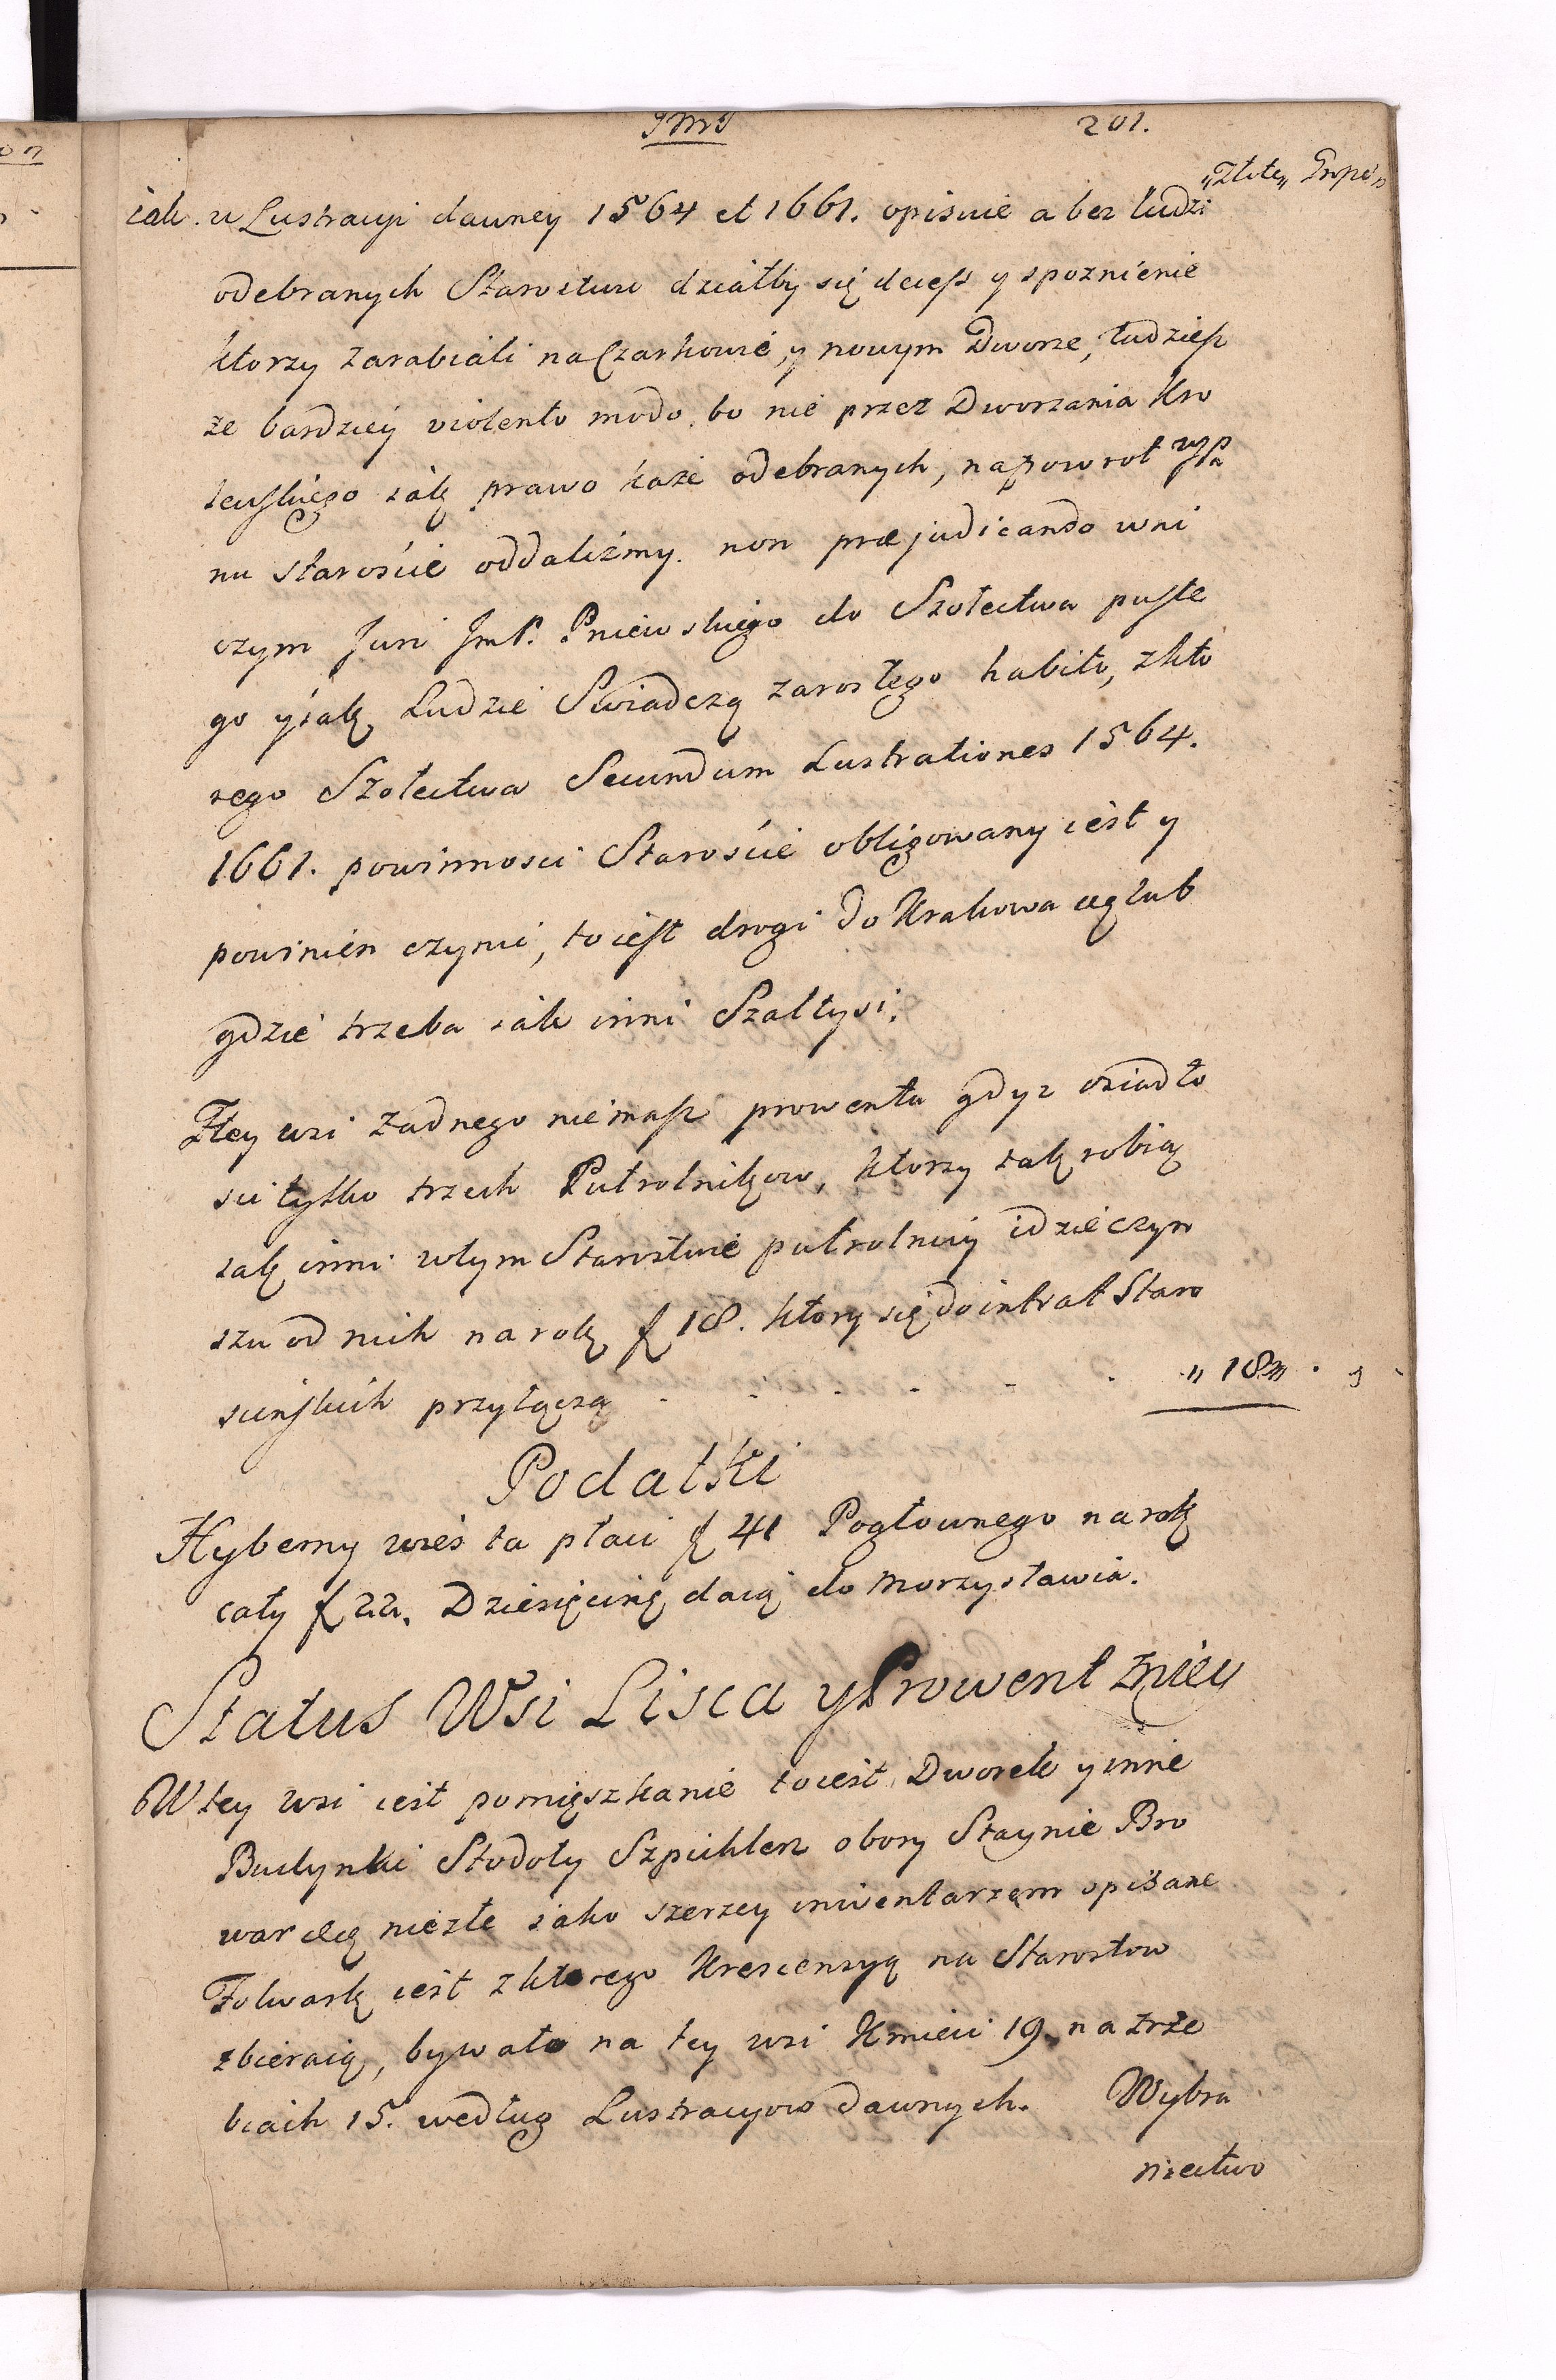 JMJ 201.
"Złote" Grosze"
iak w Lustracyi dawney 1564 et 1661. opisuie a bez ludzi
odebranych Starostwu działby się decess y spoznienie
ktorzy zarabiali na Czarkowie, y nowym Dworze, tudziesz
ze bardziey violento modo, bo nie przez Dworzania Kro
lewskiego iak prawo każe odebranych, napowrot JPa
nu staroście oddaliźmy. non præjudicando wni
czym Juri JmP. Pniewskiego do Szołectwa puste
go y iak Ludzie Swiadczą zarosłego habito, z kto
rego Szołectwa Secundum Lustrationes 1564.
1661. powinnosci Staroście obligowany iest y
powinien czynic, to iest drogi do Krakowa etc lub
gdzie trzeba iak inni Szałtysi.
Z tey wsi żadnego niemasz prowentu gdyz osiadło
sci tylko trzech Pułrolnikow, ktorzy tak robią
iak inni w tym Starostwie pułrolnicy idzie czyn
szu od nich na rok f 18. ktory się do intrat Staro
scinskich przyłącza - - - - - - "18" . ,
Podatki
Hyberny wieś ta płaci f 41 Pogłownego na rok
cały f 22. Dziesięcinę daią do Morzysławia.
Status Wsi Lisca y Prowent z niey
W tey wsi iest pomięszkanie to iest Dworek y inne
Budynki Stodoły Szpichlerz obory Staynie Bro
war etc niezłe iako szerzey inwentarzem opisane
Folwark iest z ktorego Krescensyą na Starostow
zbieraią, bywało na tey wsi Kmieci 19. na zrze
biach 15. według Lustracyow dawnych. Wybra
niectwo